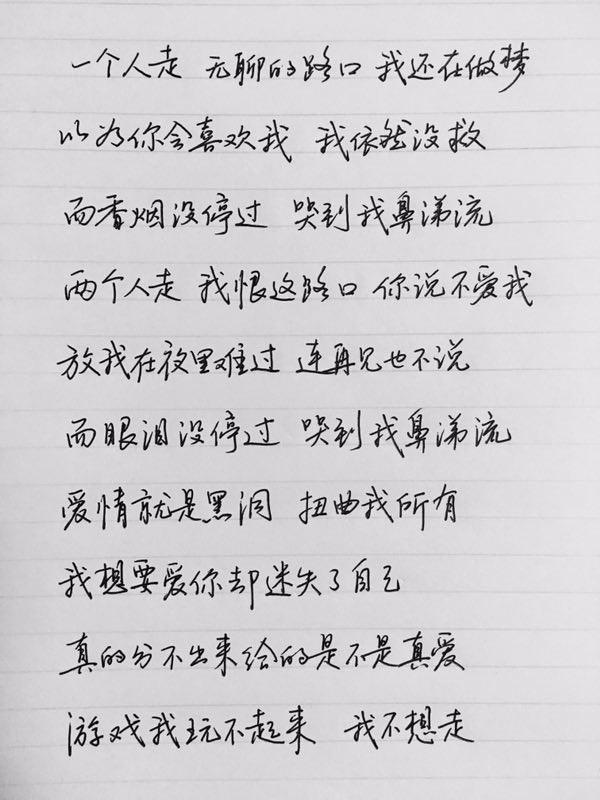 一个人走 无聊的路口 我还在做梦
以为你会喜欢我 我依然没救
而香烟没停过 哭到我鼻涕流
两个人走 我恨这路口 你说不爱我
放我在夜里难过 连再见也不说
而眼泪没停过 哭到我鼻涕流
爱情就是黑洞 扭曲我所有
我想要爱你却迷失了自己
真的分不出来给的是不是真爱
游戏我玩不起来 我不想走